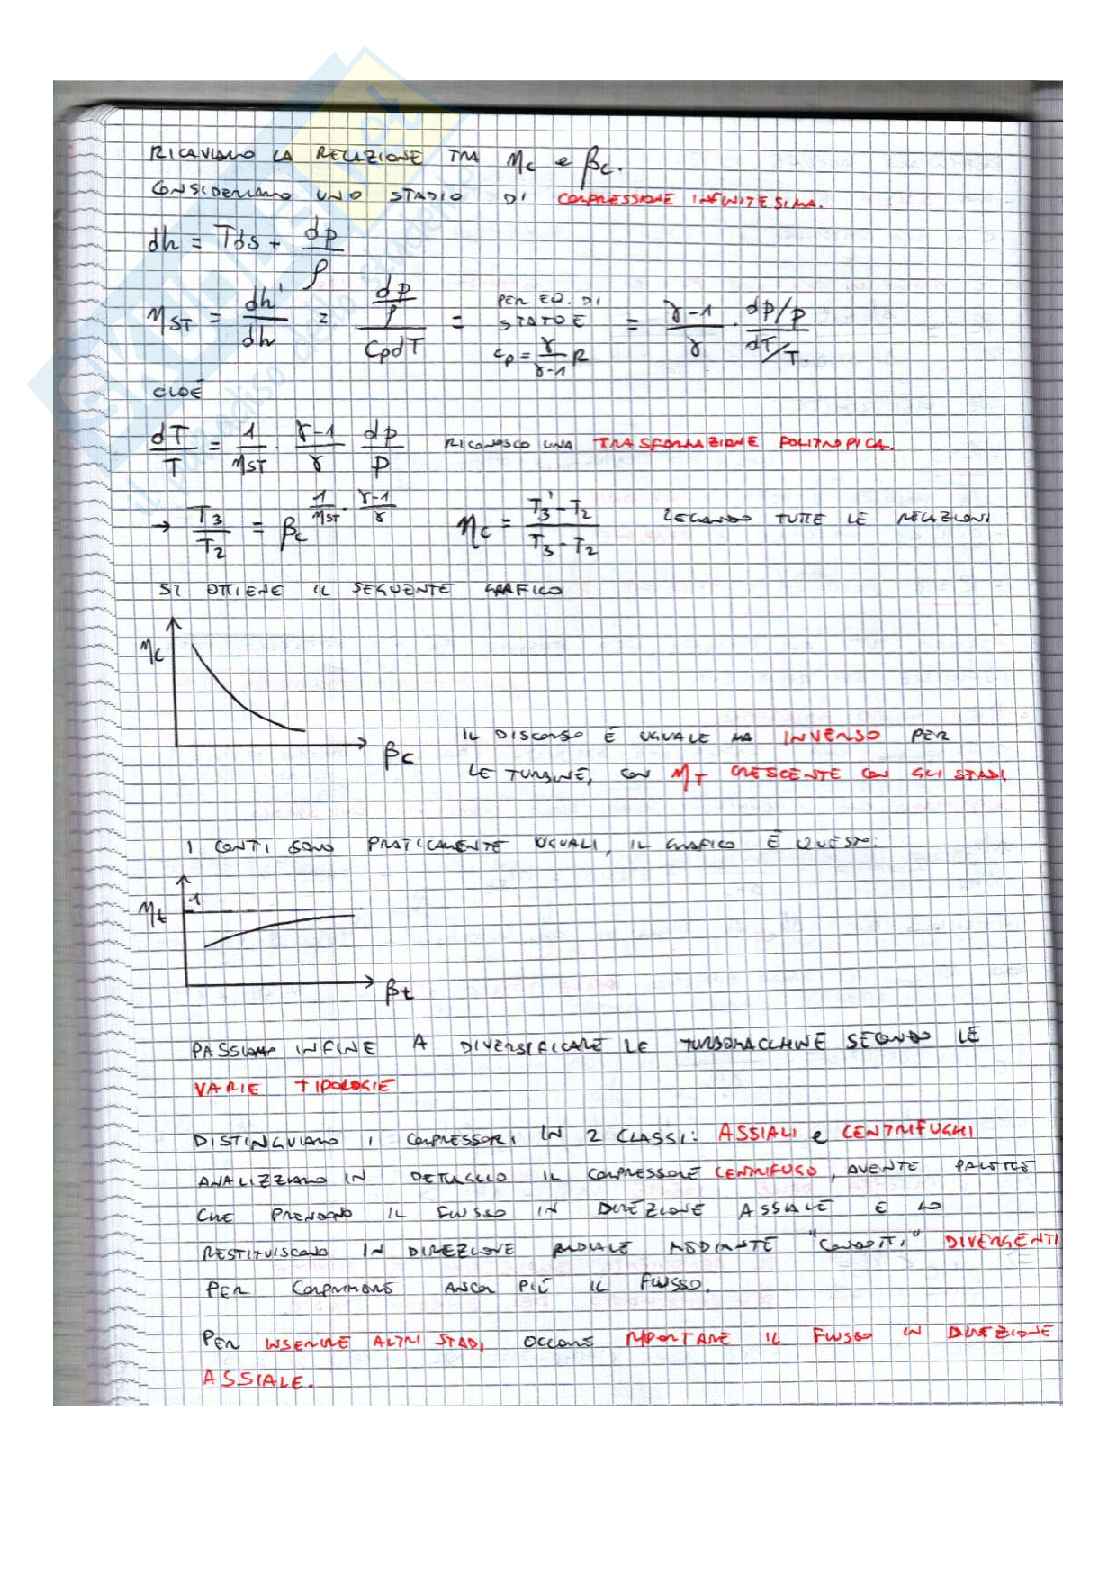 RICAVIAMO LA RELAZIONE TRA ηc e βc.
CONSIDERIAMO UNO STADIO DI COMPRESSIONE INFINITESIMA.
dh = Tds + dp/ρ
ηST = dh'/dh = (dp/ρ)/(cp dT) = PER EQ. DI STATO E cp = γ/(γ-1) R = (γ-1)/γ · (dp/p)/(dT/T)
CIOÈ
dT/T = 1/ηST · (γ-1)/γ dp/p RICONOSCO UNA TRASFORMAZIONE POLITROPICA.
→ T3/T2 = βc^(1/ηST · (γ-1)/γ) ηc = (T3'-T2)/(T3-T2) LEGANDO TUTTE LE RELAZIONI
SI OTTIENE IL SEGUENTE GRAFICO
ηc
βc
IL DISCORSO È UGUALE MA INVERSO PER
LE TURBINE, CON ηT CRESCENTE CON GLI STADI
I CONTI SONO PRATICAMENTE UGUALI, IL GRAFICO È QUESTO:
1
ηt
βt
PASSIAMO INFINE A DIVERSIFICARE LE TURBOMACCHINE SECONDO LE
VARIE TIPOLOGIE
DISTINGUIAMO I COMPRESSORI IN 2 CLASSI: ASSIALI e CENTRIFUGHI
ANALIZZIAMO IN DETTAGLIO IL COMPRESSORE CENTRIFUGO, AVENTE PALETTE
CHE PRENDONO IL FLUSSO IN DIREZIONE ASSIALE E LO
RESTITUISCONO IN DIREZIONE RADIALE MEDIANTE "CONDOTTI" DIVERGENTI
PER COMPRIMERE ANCOR PIÙ IL FLUSSO.
PER INSERIRE ALTRI STADI OCCORRE RIPORTARE IL FLUSSO IN DIREZIONE
ASSIALE.